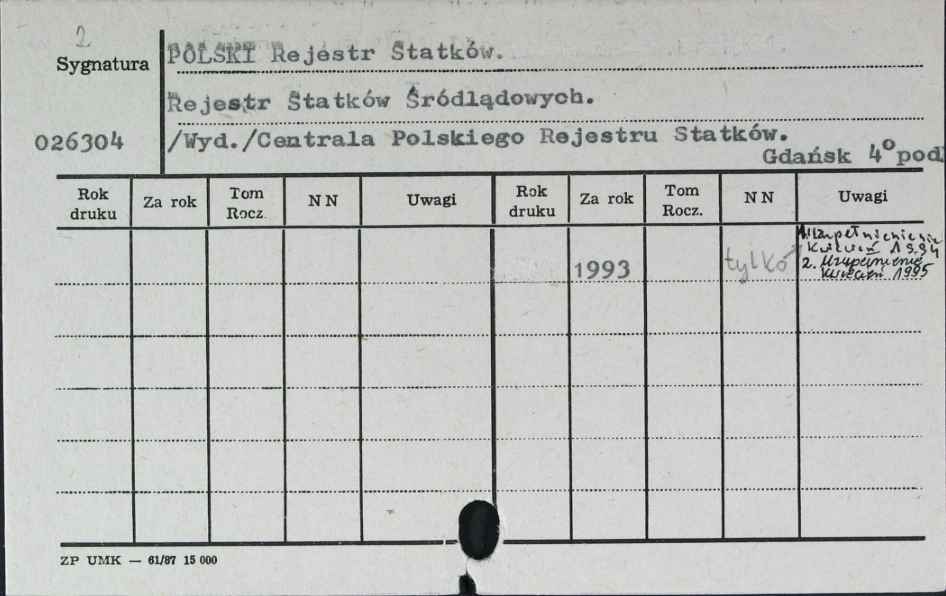 2
Sygnatura POLSKI Rejestr Statków.
Rejestr Statków Śródlądowych.
026304 /Wyd./Centrala Polskiego Rejestru Statków.
Gdańsk 4° pod
Rok druku Za rok Tom Rocz. NN Uwagi Rok druku Za rok Tom Rocz. NN Uwagi
1. Uzupełnienie
kwiecień 1994
1993 tylko 2. Uzupełnienie
kwiecień 1995
ZP UMK — 61/87 15 000